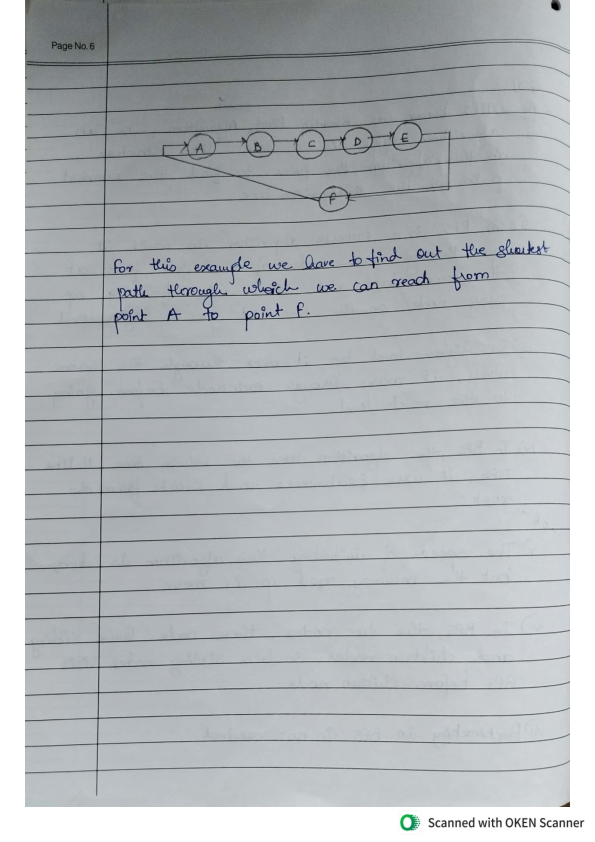 Page No. 6
A B C D E
F
For this example we have to find out the shortest
path through which we can reach from
point A to point F.
Scanned with OKEN Scanner